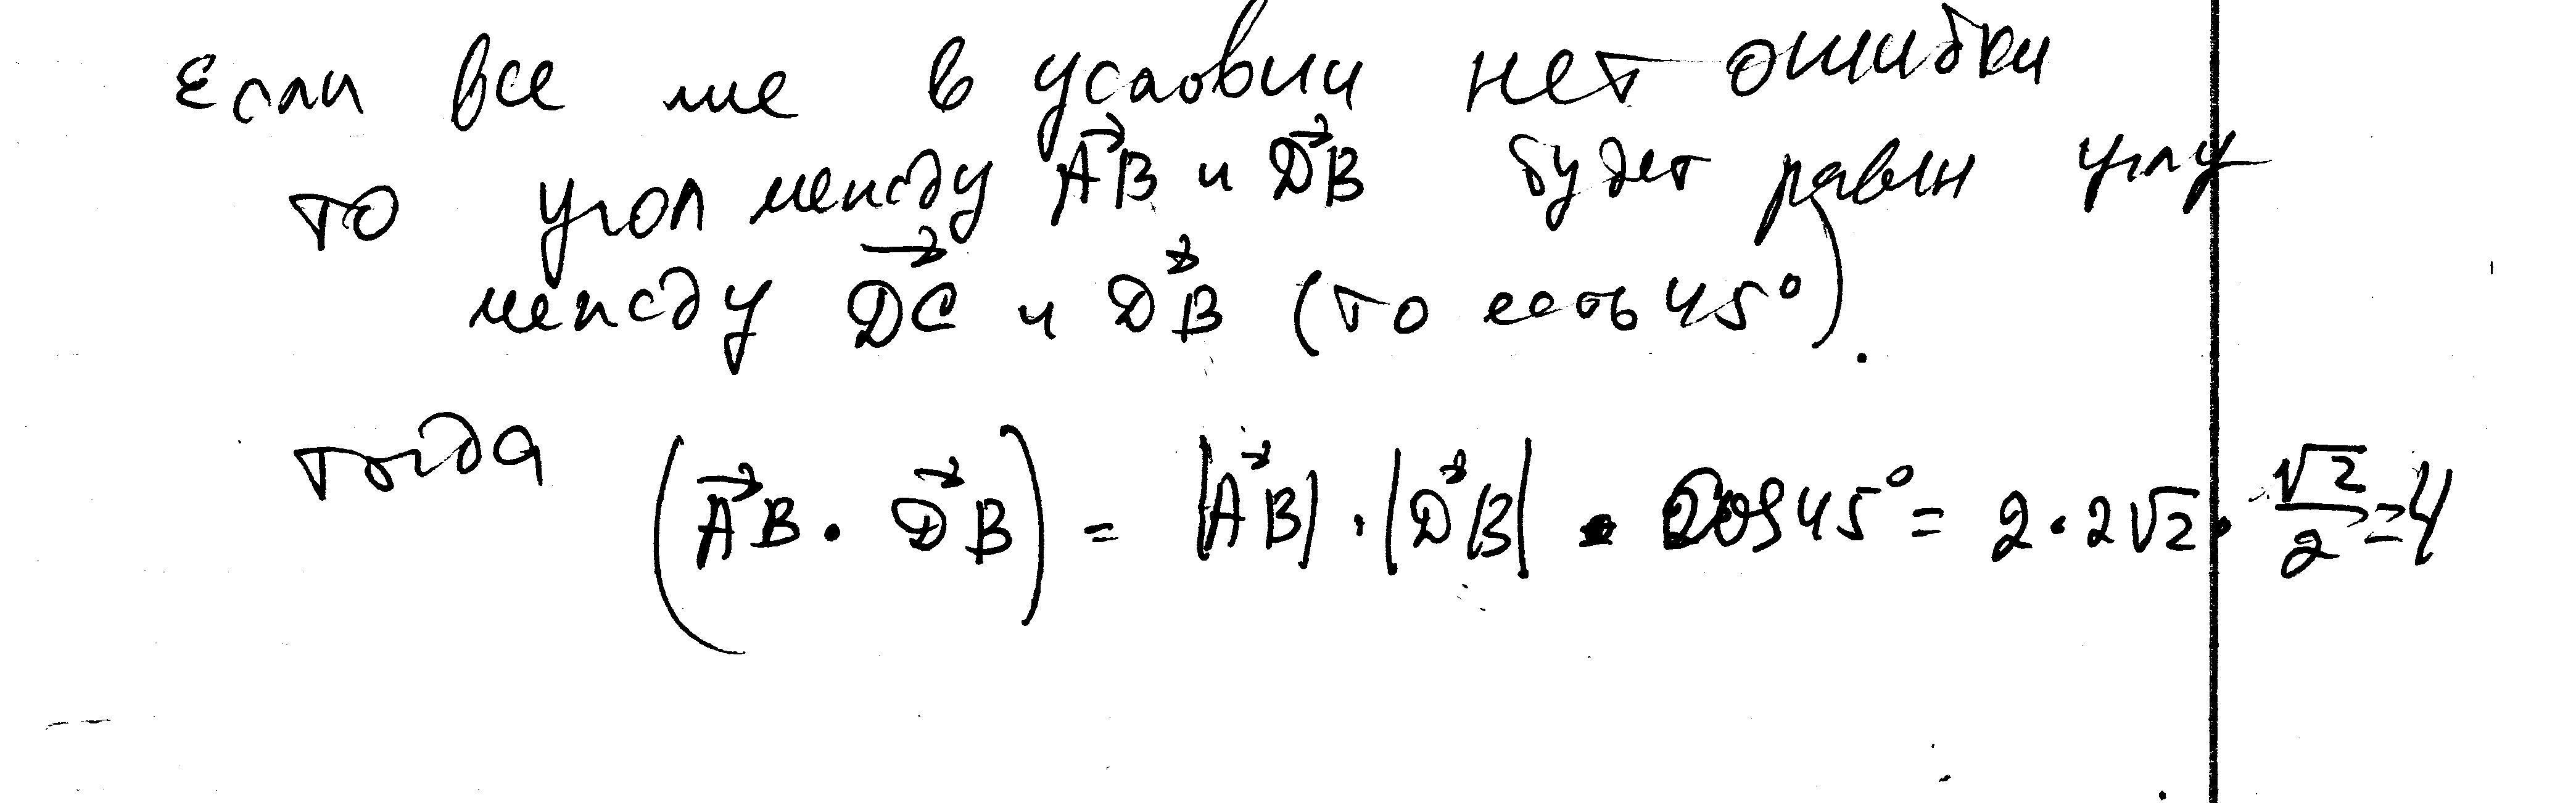 Если все же в условии нет ошибки
то угол между \vec{AB} и \vec{DB} будет равен углу
между \vec{DC} и \vec{DB} (то есть 45°).
тогда (\vec{AB} · \vec{DB}) = |\vec{AB}| · |\vec{DB}| · cos 45° = 2 · 2√2 · √2/2 = 4